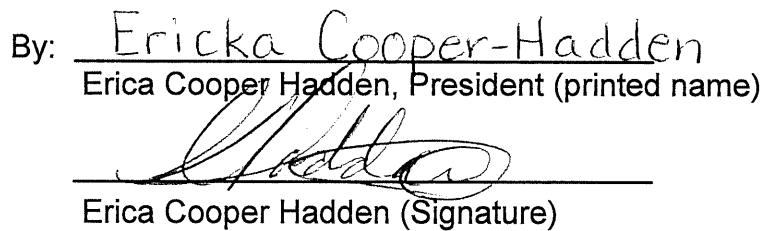 By: Ericka Cooper-Hadden
Erica Cooper Hadden, President (printed name)
Hadden
Erica Cooper Hadden (Signature)